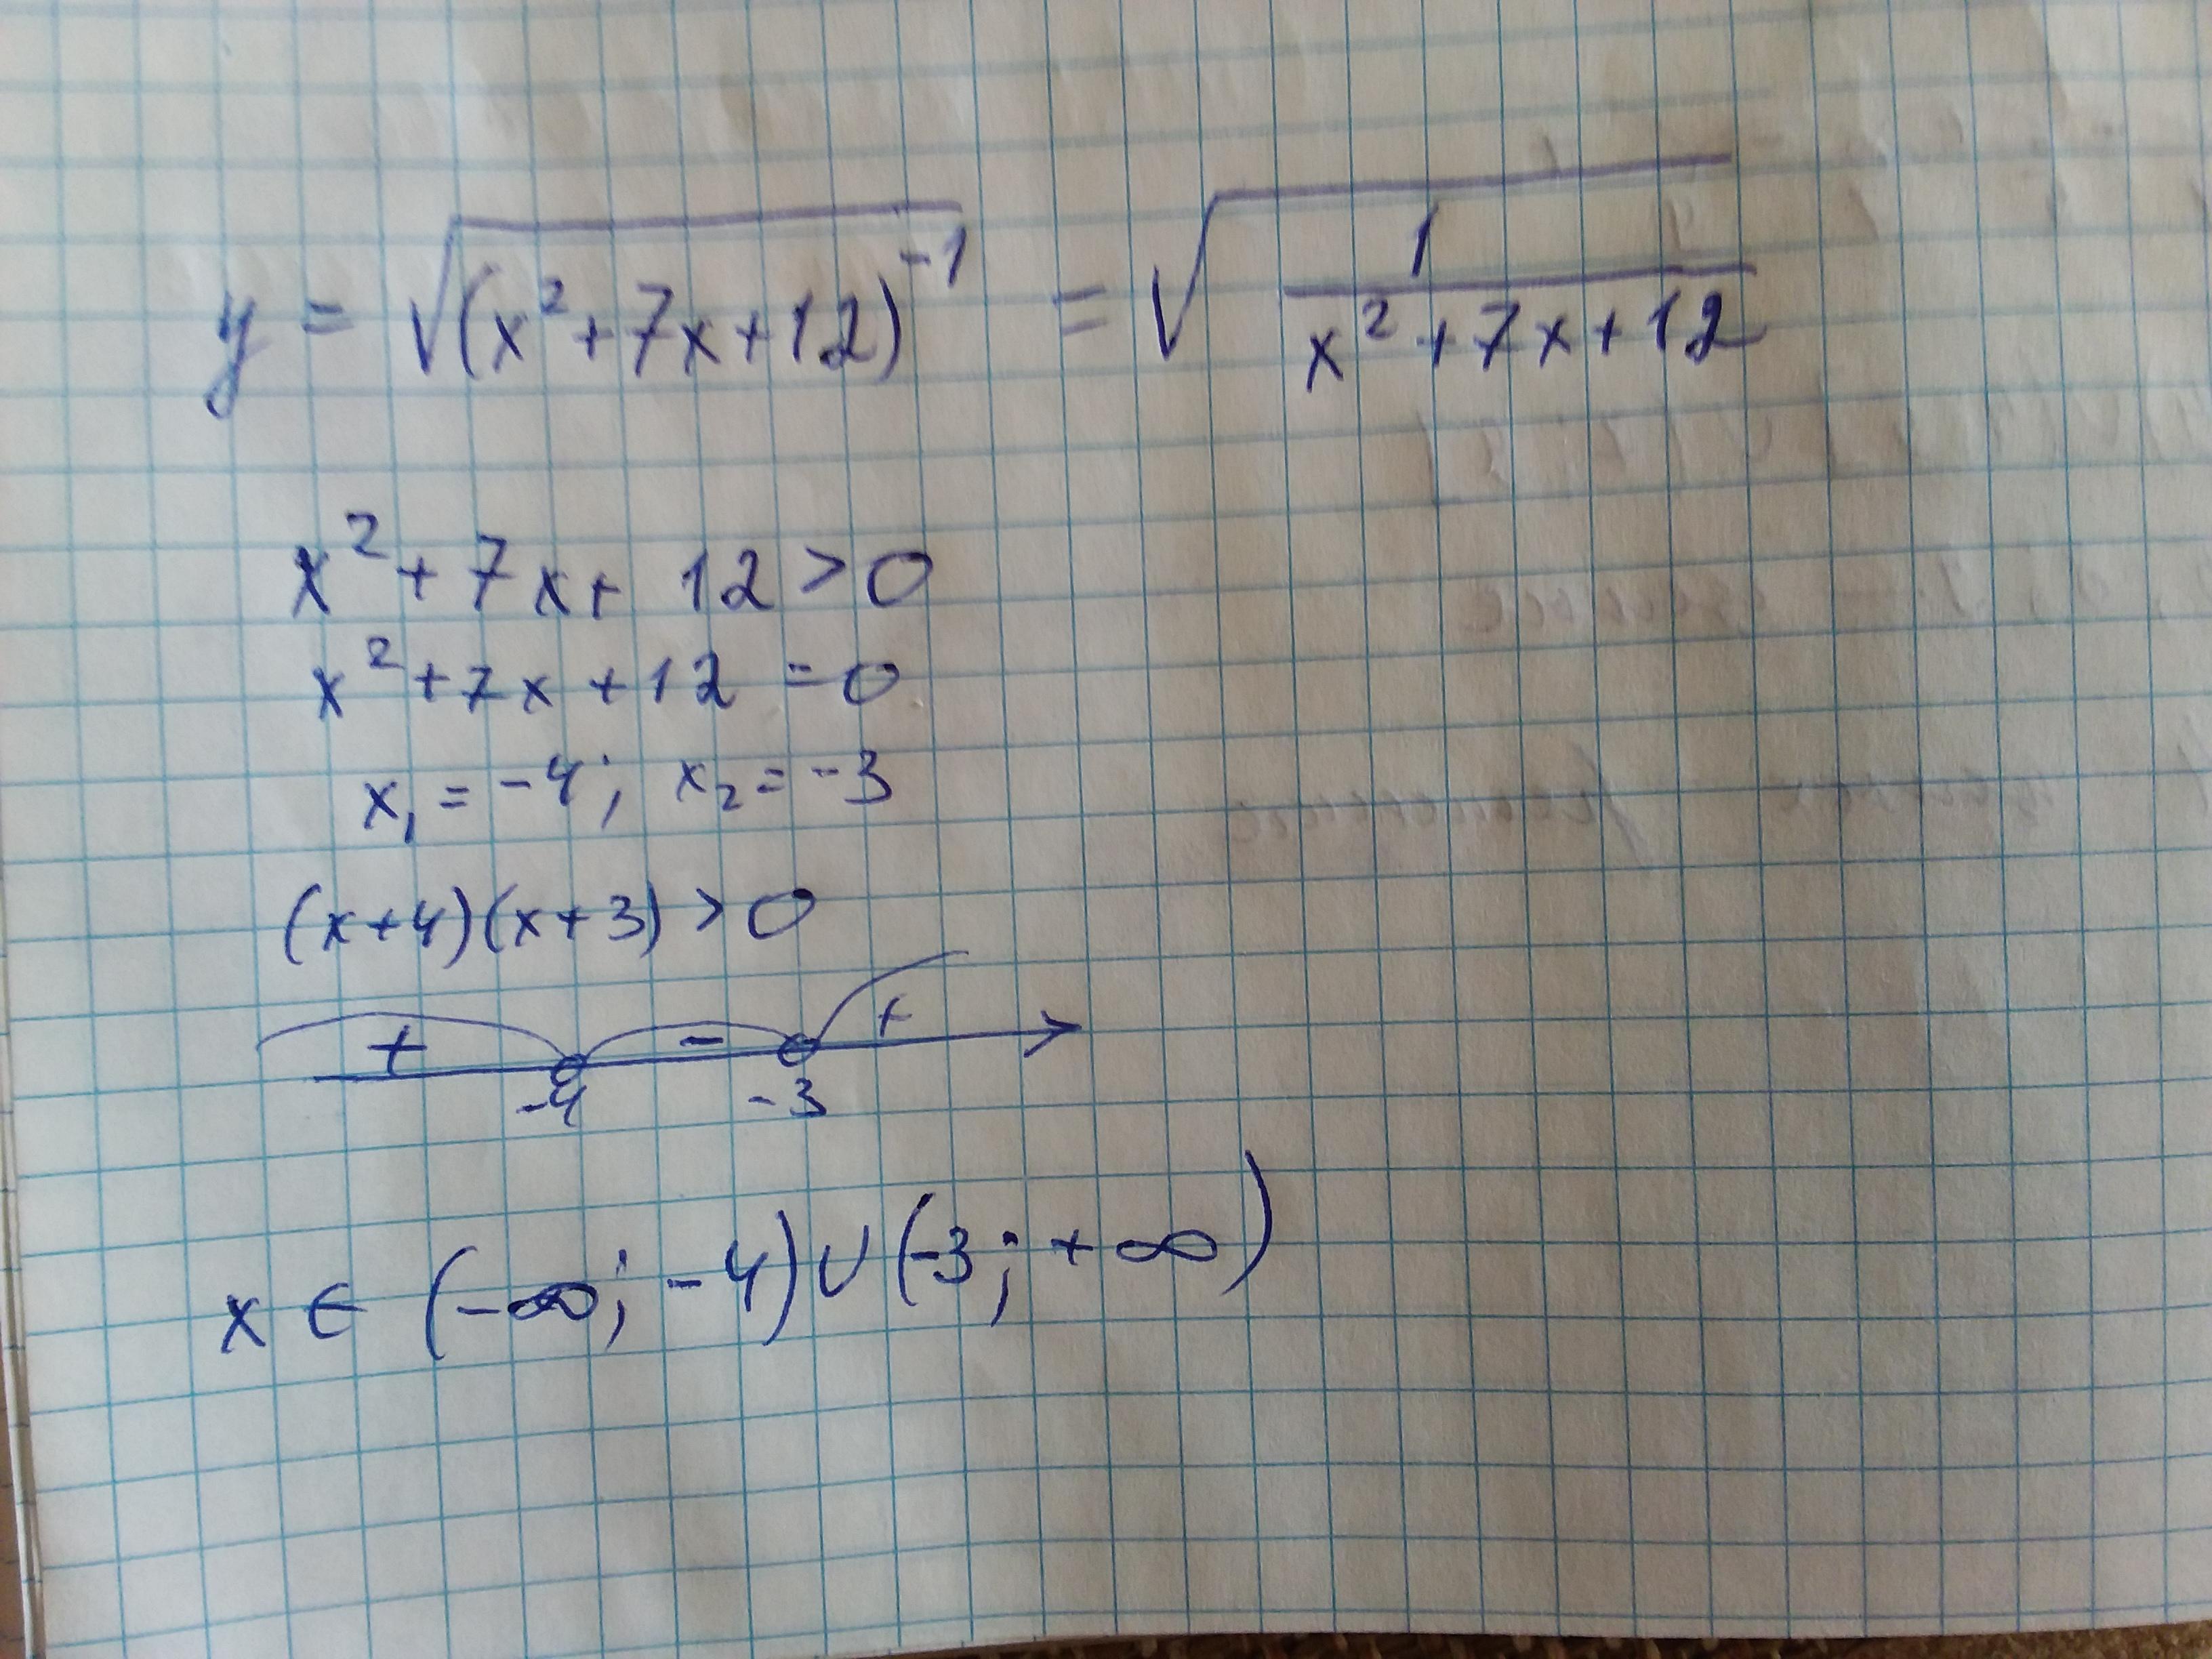 y = √(x²+7x+12)⁻¹ = √1/(x²+7x+12)
x²+7x+12>0
x²+7x+12=0
x₁=-4; x₂=-3
(x+4)(x+3)>0
+ - +
-4 -3
x∈(-∞;-4)∪(-3;+∞)